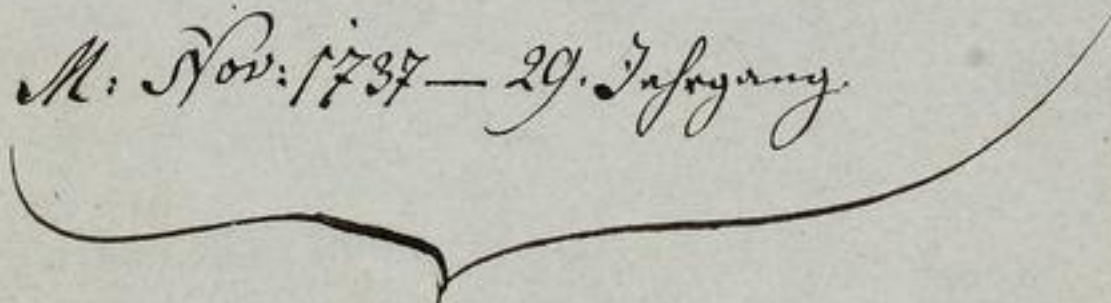 M: Nov: 1737 — 29. Jahrgang.